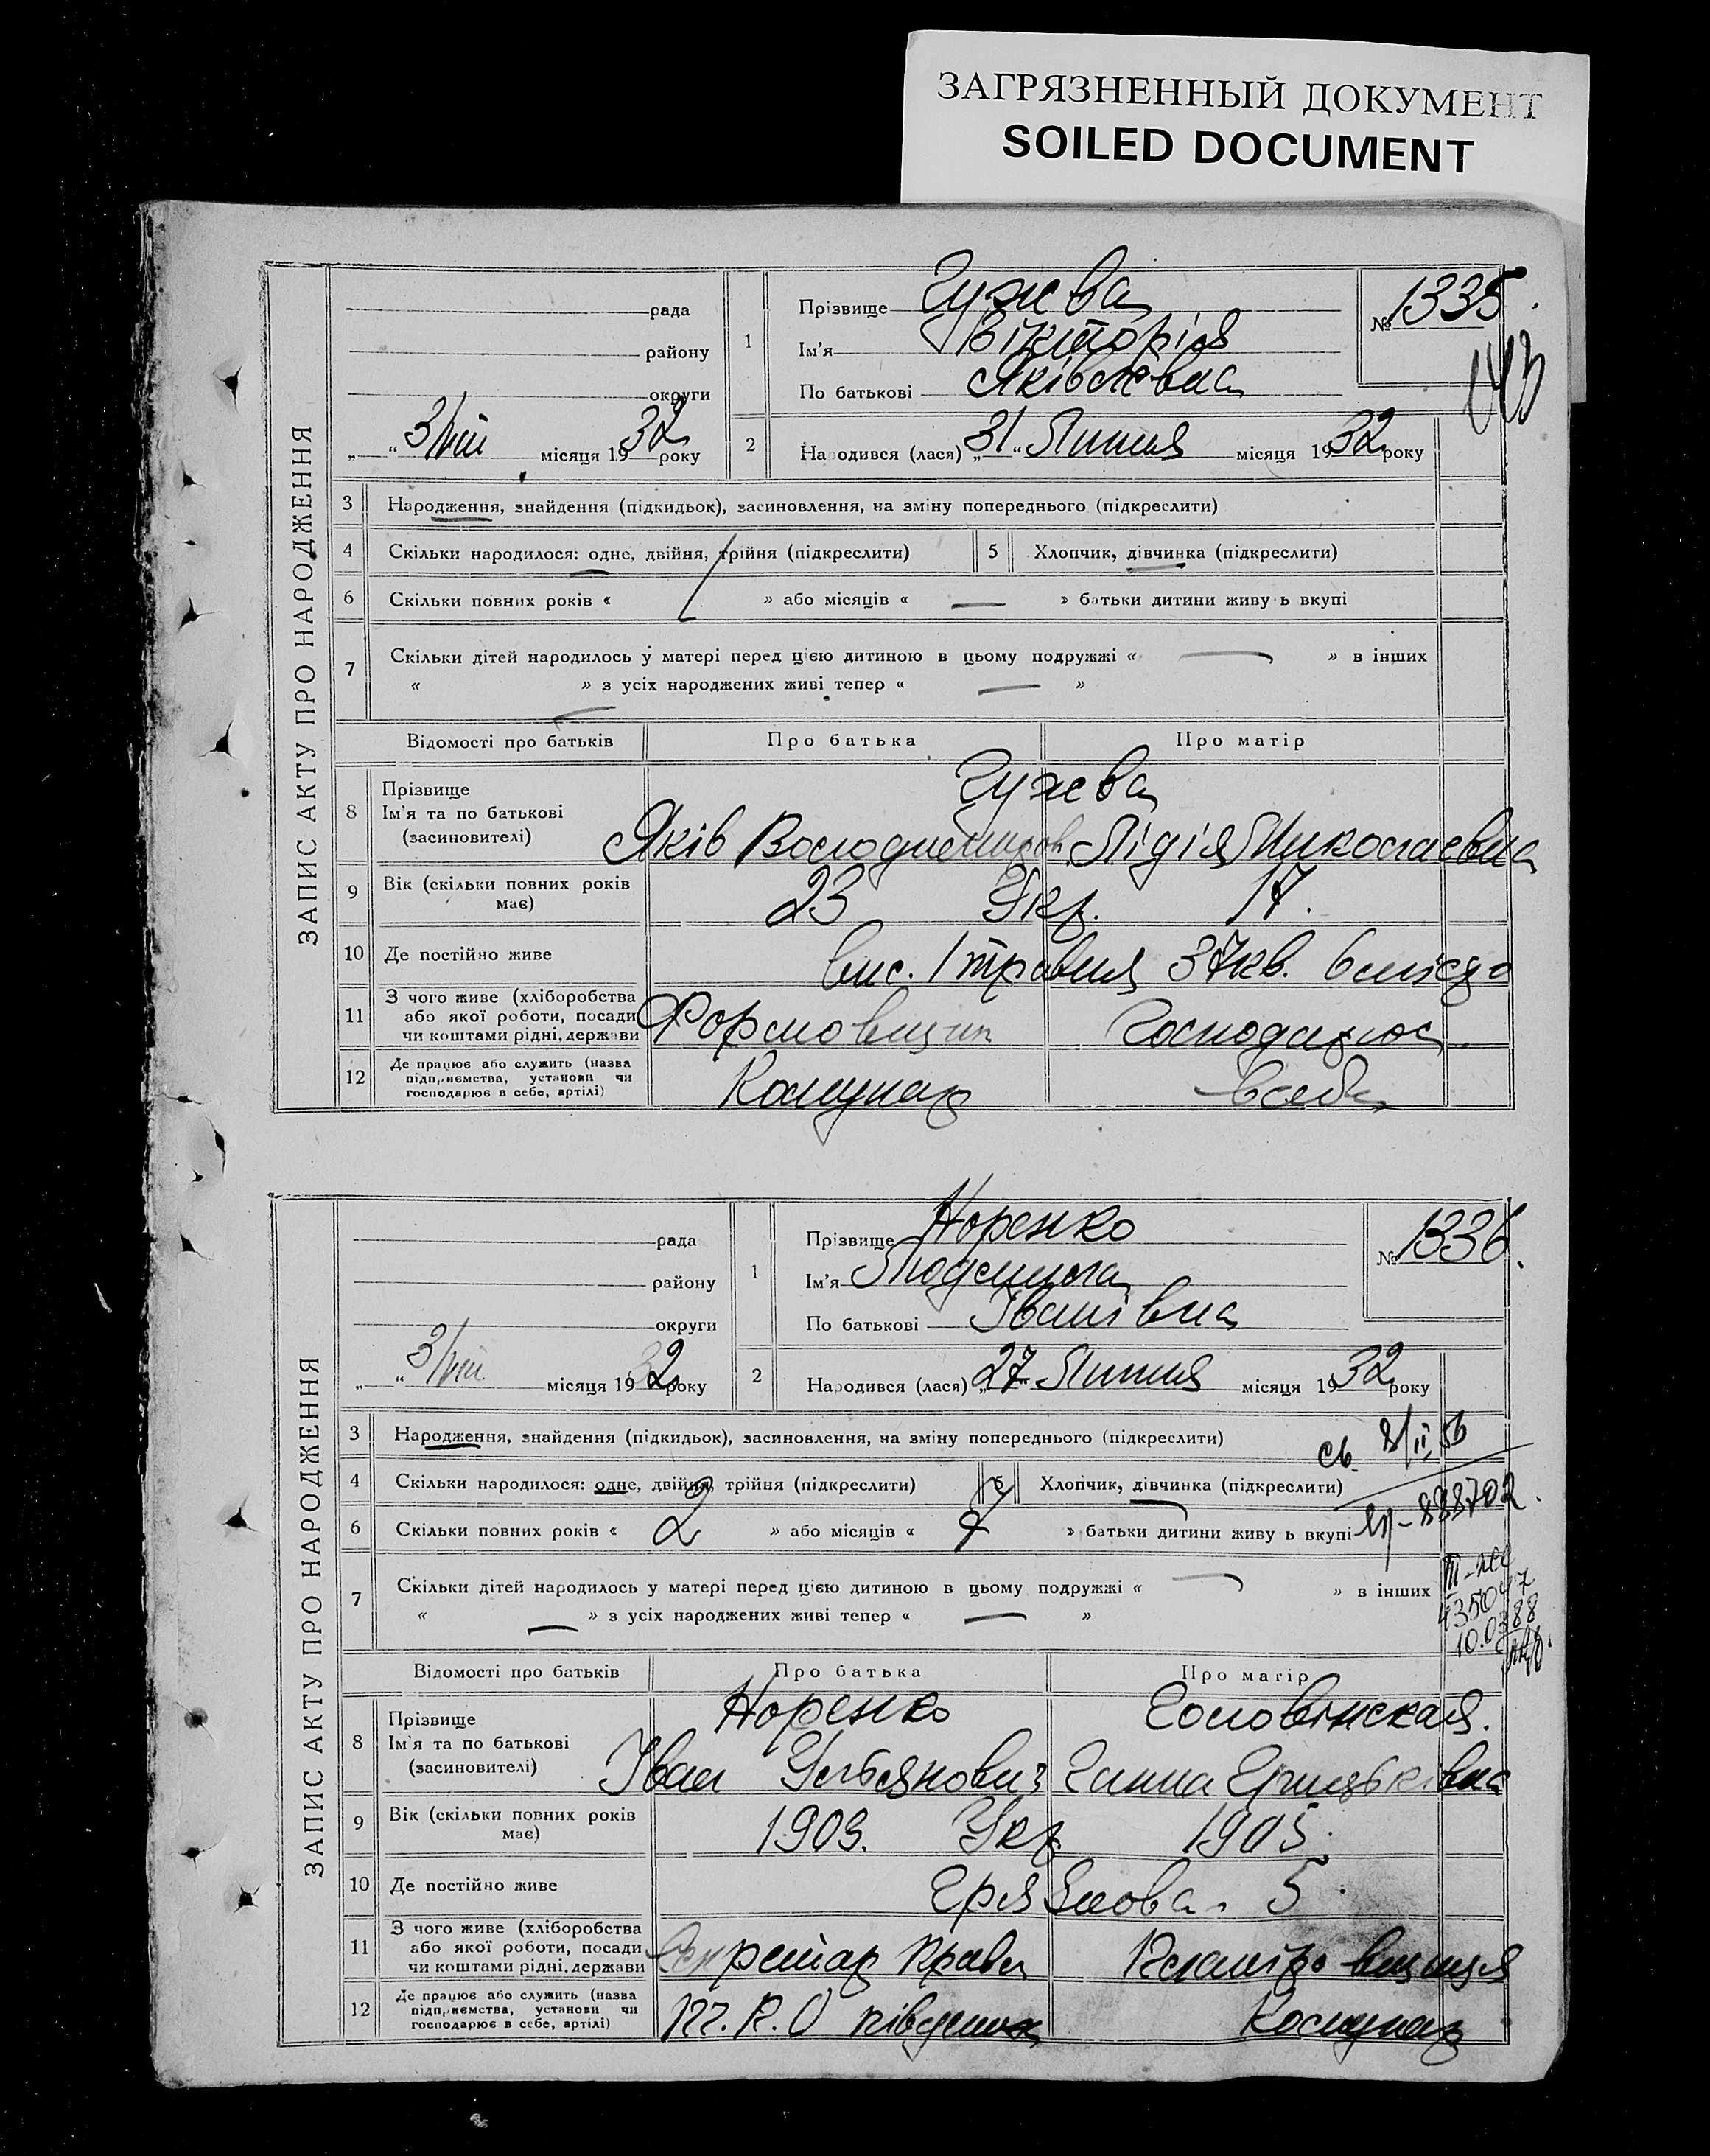 ЗАГРЯЗНЕННЫЙ ДОКУМЕНТ
SOILED DOCUMENT
ЗАПИС АКТУ ПРО НАРОДЖЕННЯ
рада
району
округи
„ “ 3/VIII місяця 1932 року
1
Прізвище Гужева
Ім'я Вікторія
По батькові Яківлевна
№ 1335.
2
Народився (лася) „31“ Липня місяця 1932 року
3 Народження, знайдення (підкидьок), засиновлення, на зміну попереднього (підкреслити)
4 Скільки народилося: одне, двійня, трійня (підкреслити)
5 Хлопчик, дівчинка (підкреслити)
6 Скільки повних років « 1 » або місяців « — » батьки дитини живу ь вкупі
7 Скільки дітей народилось у матері перед цією дитиною в цьому подружжі « — » в інших
« — » з усіх народжених живі тепер « — »
Відомості про батьків Про батька Про матір
8 Прізвище
Ім'я та по батькові
(засновителі)
Гужева
Яків Володимиров Лідія Николаевна
9 Вік (скільки повних років має)
23 Укр. 17.
10 Де постійно живе
вис. 1 травня 37кв.
11 З чого живе (хліборобства
або якої роботи, посади
чи коштами рідні, держави
Формовщик Господарює
12 Де працює або служить (назва
підприємства, установи чи
господарює в себе, артілі)
Комунар в себе
ЗАПИС АКТУ ПРО НАРОДЖЕННЯ
рада
району
округи
„ “ 3/VIII місяця 1932 року
1
Прізвище Норенко
Ім'я Людмила
По батькові Іванівна
№ 1336.
2
Народився (лася) „27“ Липня місяця 1932 року
3 Народження, знайдення (підкидьок), засиновлення, на зміну попереднього (підкреслити)
св. 8/II 56
4 Скільки народилося: одне, двійня, трійня (підкреслити)
5 Хлопчик, дівчинка (підкреслити)
888702.
6 Скільки повних років « 2 » або місяців « 7 » батьки дитини живу ь вкупі
7 Скільки дітей народилось у матері перед цією дитиною в цьому подружжі « — » в інших
« — » з усіх народжених живі тепер « — »
435047
10.03.88
Відомості про батьків Про батька Про матір
8 Прізвище
Ім'я та по батькові
(засиновителі)
Норенко Головінская.
Іван Ульянович Ганна Грицьківна
9 Вік (скільки повних років має)
1903. Укр 1905.
10 Де постійно живе
5
11 З чого живе (хліборобства
або якої роботи, посади
чи коштами рідні, держави
Секретар Правл
12 Де працює або служить (назва
підприємства, установи чи
господарює в себе, артілі)
Комунар